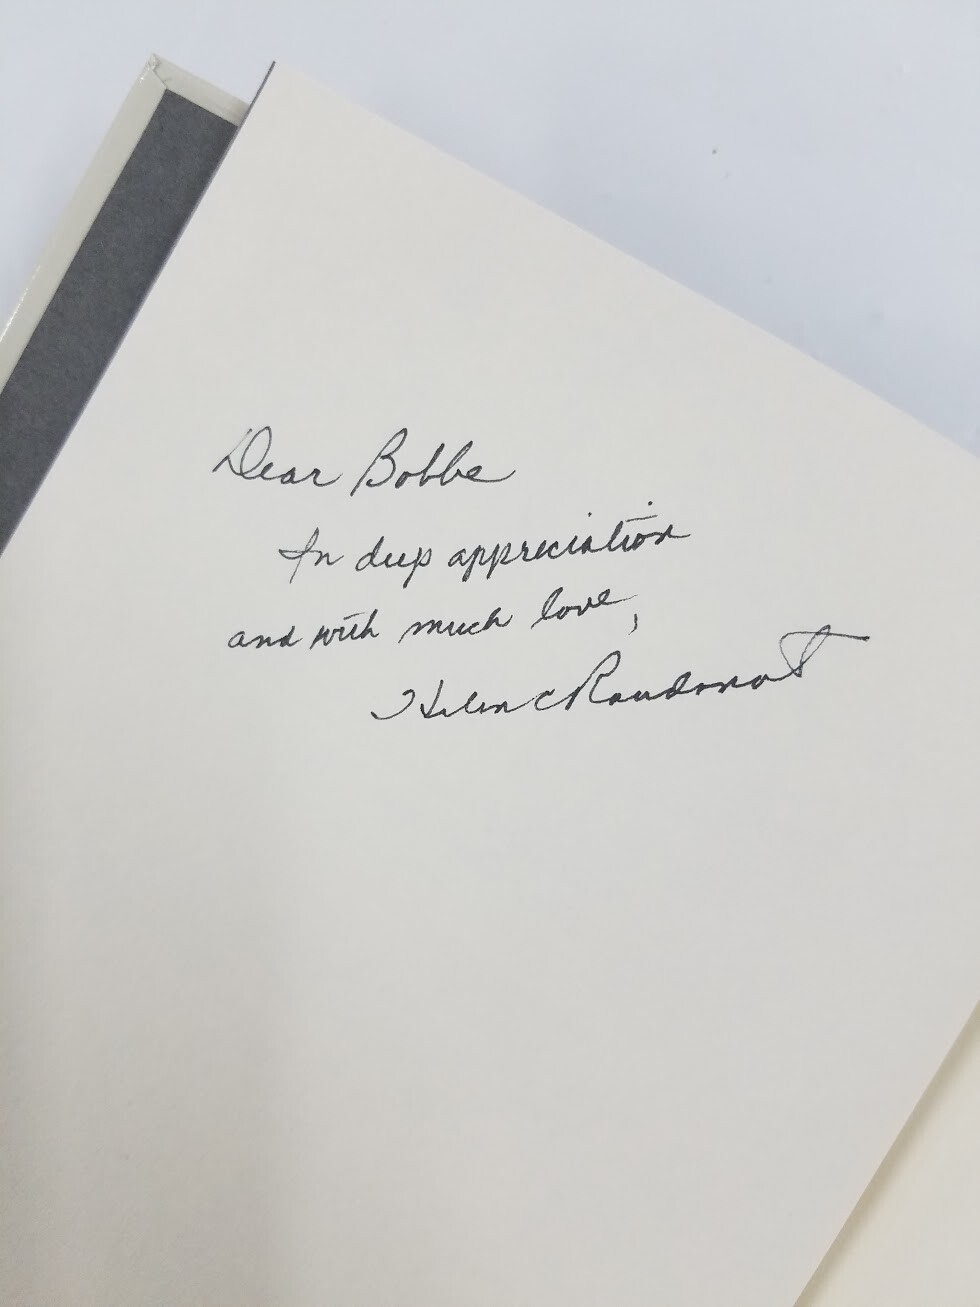 Dear Bobbe
In deep appreciation
and with much love,
Helen